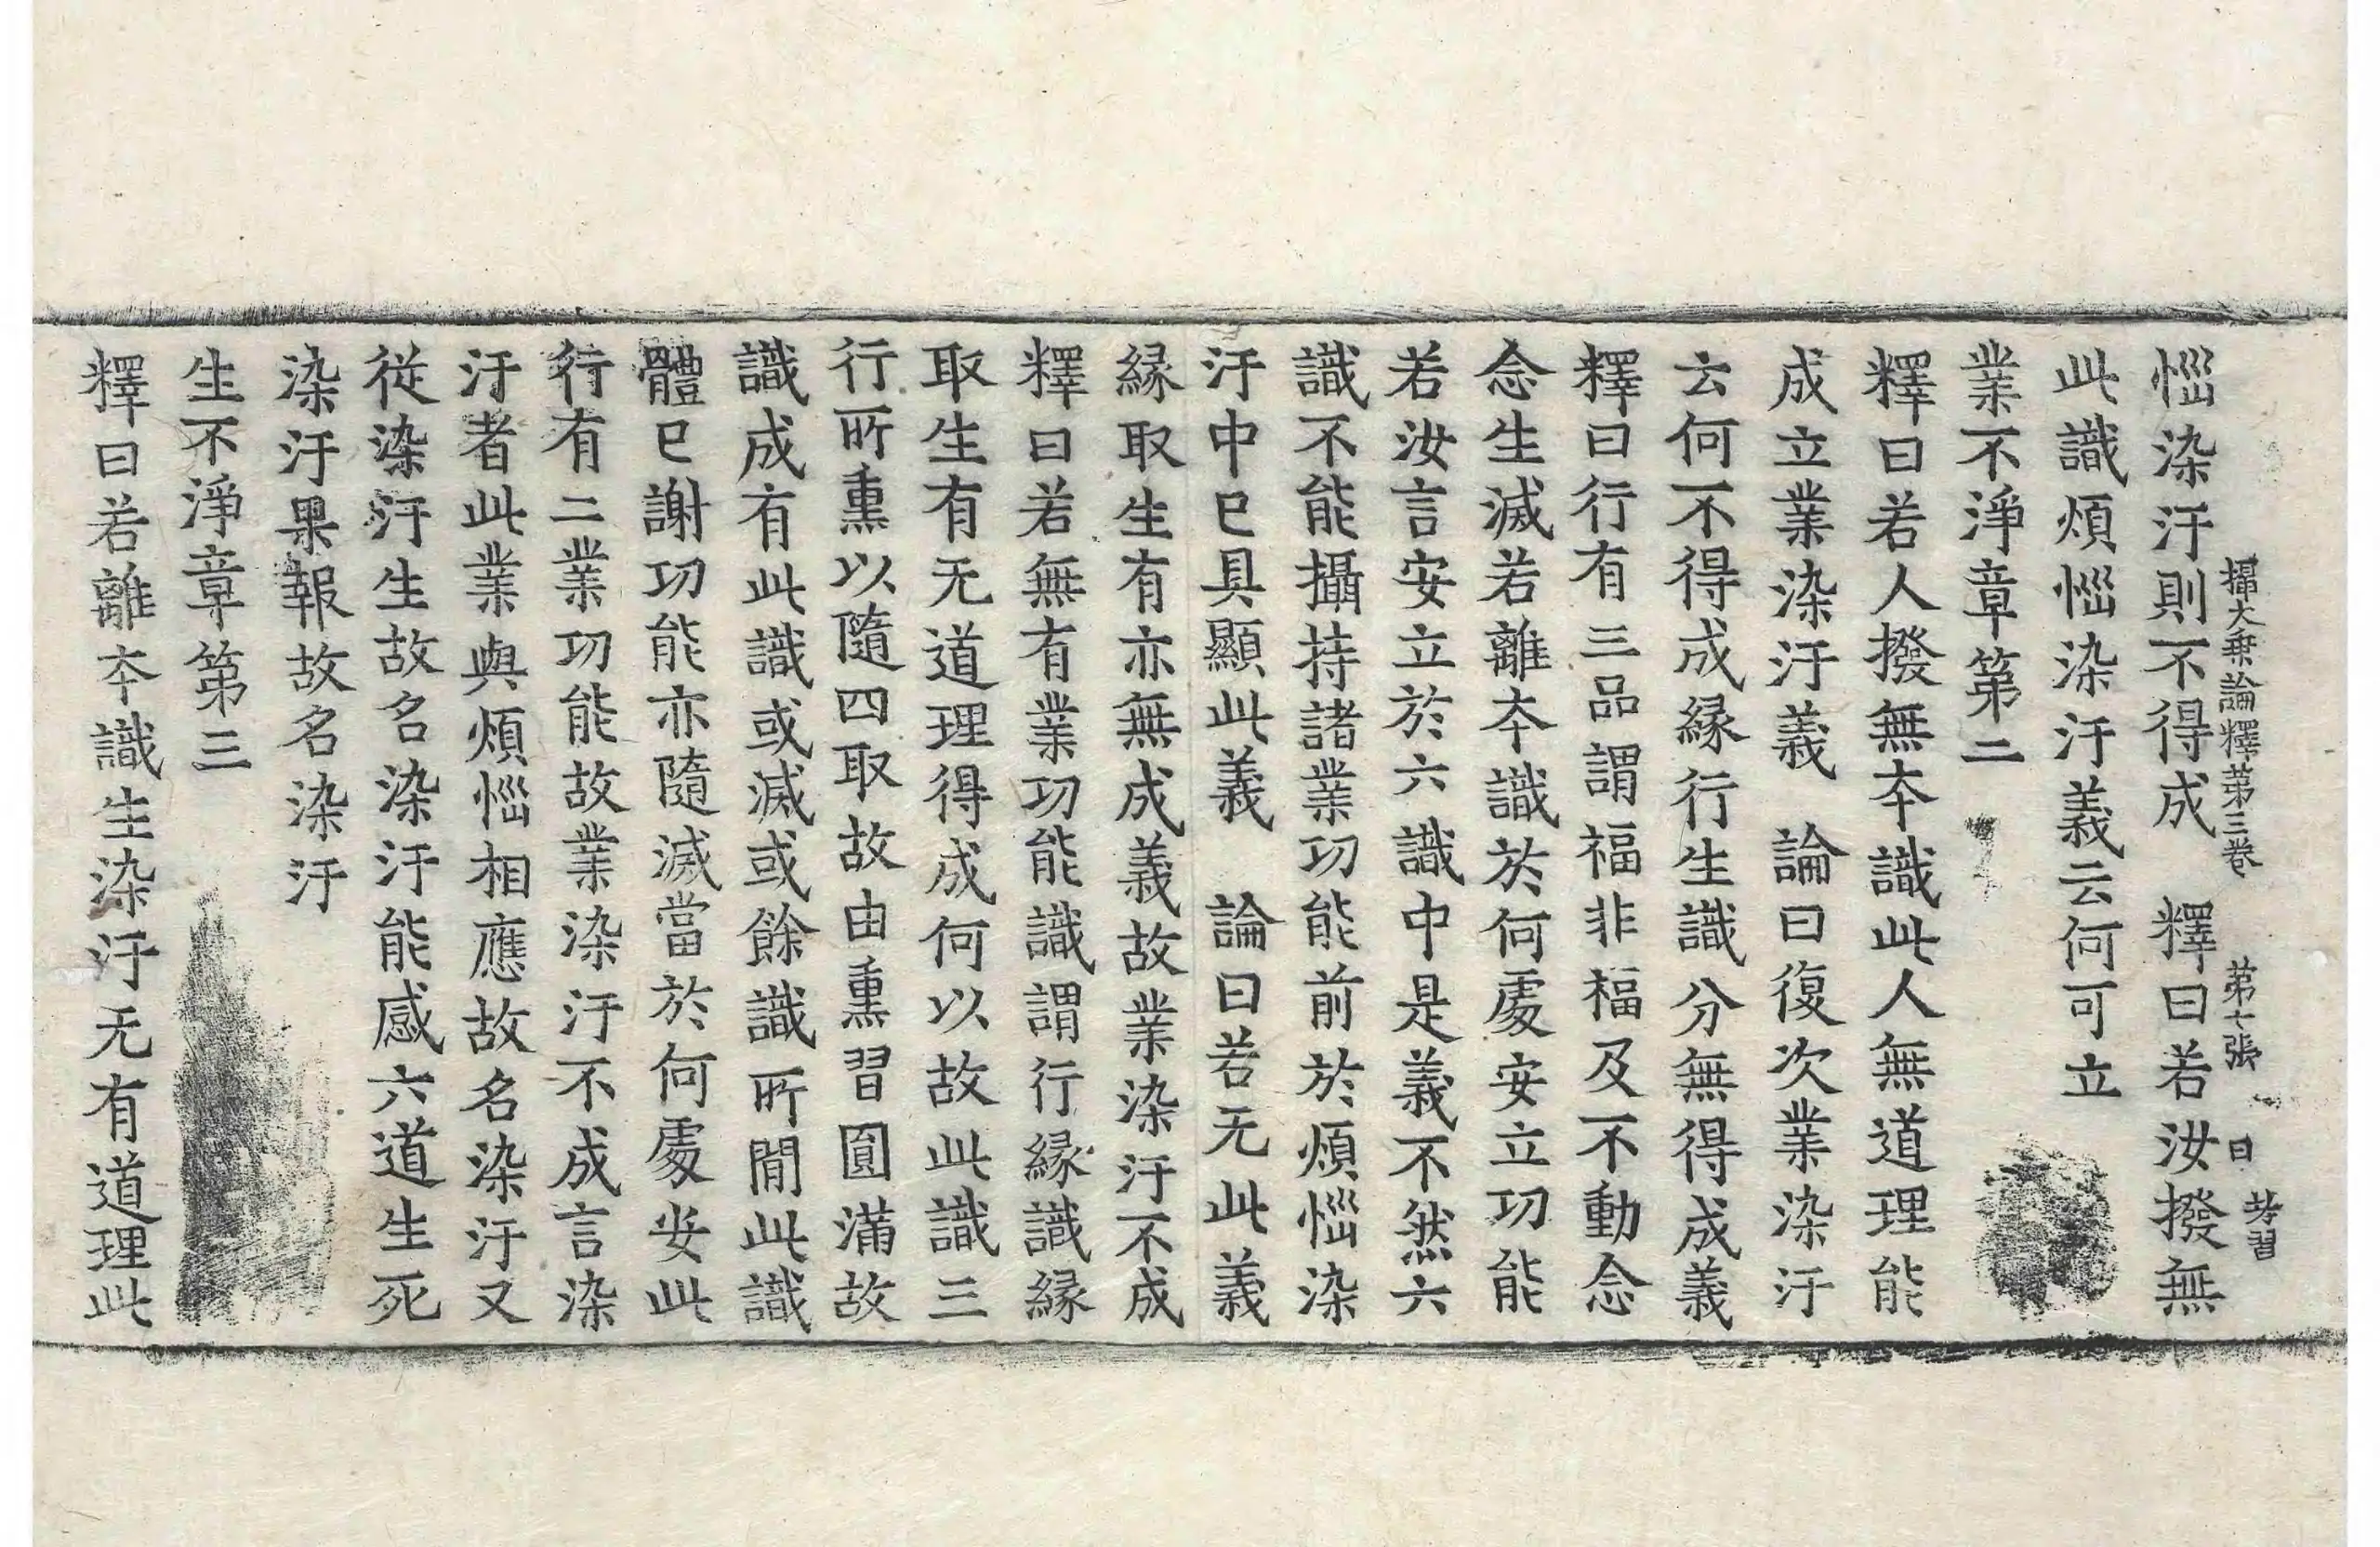 惱染汙則不得成　釋曰若汝撥無
攝大乘論釋第三卷　第七張　日
此識煩惱染汙義云何可立
業不淨章第二
釋曰若人撥無本識此人無道理能
成立業染汙義　論曰復次業染汙
云何不得成緣行生識分無得成義
釋曰行有三品謂福非福及不動念
念生滅若離本識於何處安立功能
若汝言安立於六識中是義不然六
識不能攝持諸業功能前於煩惱染
汙中已具顯此義　論曰若无此義
緣取生有亦無成義故業染汙不成
釋曰若無有業功能識謂行緣識緣
取生有无道理得成何以故此識三
行所熏以隨四取故由熏習圓滿故
識成有此識或滅或餘識所間此識
體已謝功能亦隨滅當於何處安此
行有二業功能故業染汙不成言染
汙者此業與煩惱相應故名染汙又
從染汙生故名染汙能感六道生死
染汙果報故名染汙
生不淨章第三
釋曰若離本識生染汙无有道理此